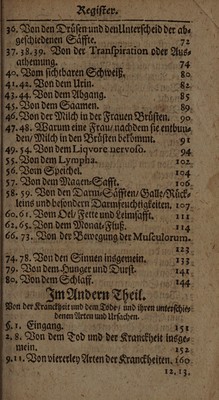 Register.
36. Von den Drüsen und den Unterscheid der ab-
geschiedenen Säffte. 72
37. 38. 39. Von der Transpiration oder Aus-
athemung. 74
40. Vom sichtbaren Schweiß. 80
41. 42. Von dem Urin. 82
43. 44. Von dem Abgang. 85
45. Von dem Saamen. 89
46. Von der Milch in den Frauen Brüsten. 90
47. 48. Warum eine Frau / nachdem sie entbun-
den / Milch in den Brüsten bekommt. 91
49. 54. Von dem Liqvore nervoso. 94
55. Von dem Lympha. 102
56. Vom Speichel. 104
57. Von dem Magen-Safft. 106
58. 59. Von den Darm-Säfften / Galle / Rück-
leins und besondern Darmfeuchtigkeiten. 107
60. 61. Vom Oel / Fette und Leimsafft. 111
62. 65. Von dem Monat-Fluß. 114
66. 73. Von der Bewegung der Musculorum.
123
74. 78. Von den Sinnen insgemein. 133
79. Von dem Hunger und Durst. 141
80. Von dem Schlaff. 144
Im Andern Theil.
Von der Kranckheit und dem Tode / und ihren unterschie-
denen Arten und Ursachen.
§. 1. Eingang. 151
2. 8. Von dem Tod und der Kranckheit insge-
mein. 152
9. 11. Von viererley Arten der Kranckheiten. 160
12. 13.